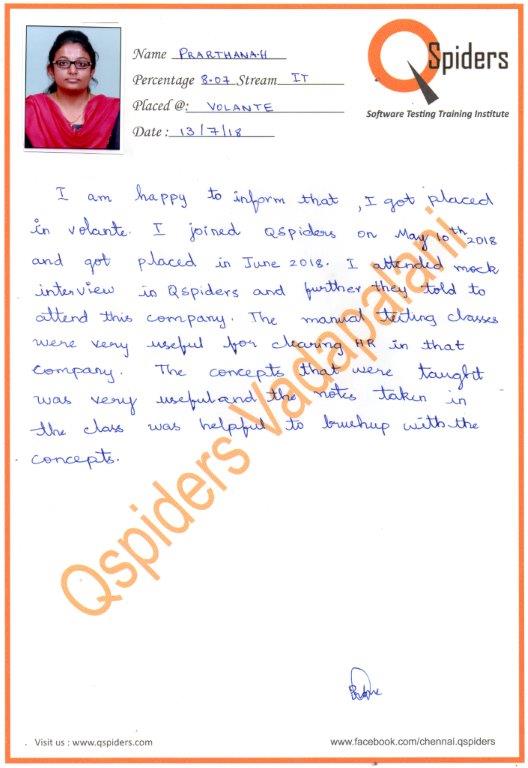 Name PRARTHANA.H
Percentage 8.07 Stream IT
Placed @: VOLANTE
Date : 13/7/18
QSpiders
Software Testing Training Institute
I am happy to inform that, I got placed
in volante. I joined QSpiders on May 10th 2018
and got placed in June 2018. I attended mock
interview in QSpiders and further they told to
attend this company. The manual testing classes
were very useful for clearing HR in that
company. The concepts that were taught
was very useful and the notes taken in
the class was helpful to brushup with the
concepts.
Qspiders Vadapalani
Visit us : www.qspiders.com
www.facebook.com/chennai.qspiders